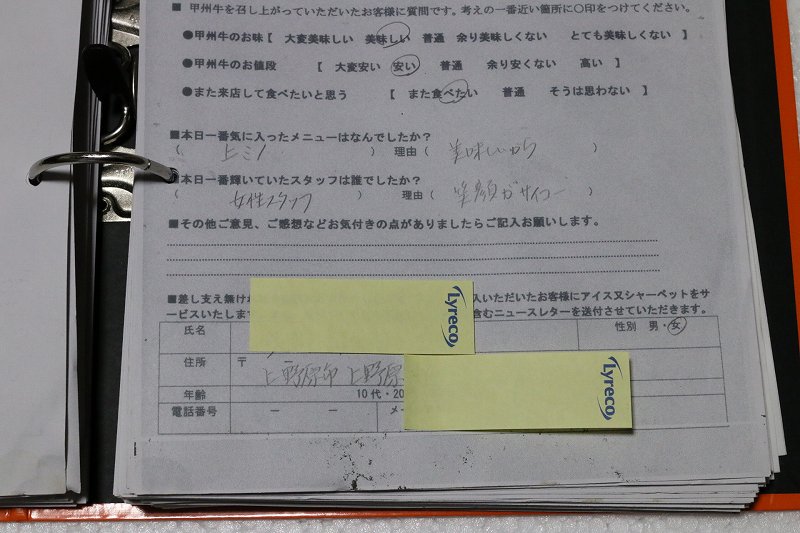 ■ 甲州牛を召し上がっていただいたお客様に質問です。考えの一番近い箇所に〇印をつけてください。
●甲州牛のお味【 大変美味しい 美味しい 普通 余り美味しくない とても美味しくない 】
●甲州牛のお値段 【 大変安い 安い 普通 余り安くない 高い 】
●また来店して食べたいと思う 【 また食べたい 普通 そうは思わない 】
■本日一番気に入ったメニューはなんでしたか?
( 上ミノ ) 理由( 美味しいから )
■本日一番輝いていたスタッフは誰でしたか?
( 女性スタッフ ) 理由( 笑顔がサイコー )
■その他ご意見、ご感想などお気付きの点がありましたらご記入お願いします。
■差し支え無けれ
入いただいたお客様にアイス又シャーベットをサ
ービスいたします
含むニュースレターを送付させていただきます。
氏名 性別 男・女
Lyreco
住所 〒
上野原市 上野原
Lyreco
年齢 10代・20
電話番号 － － メ